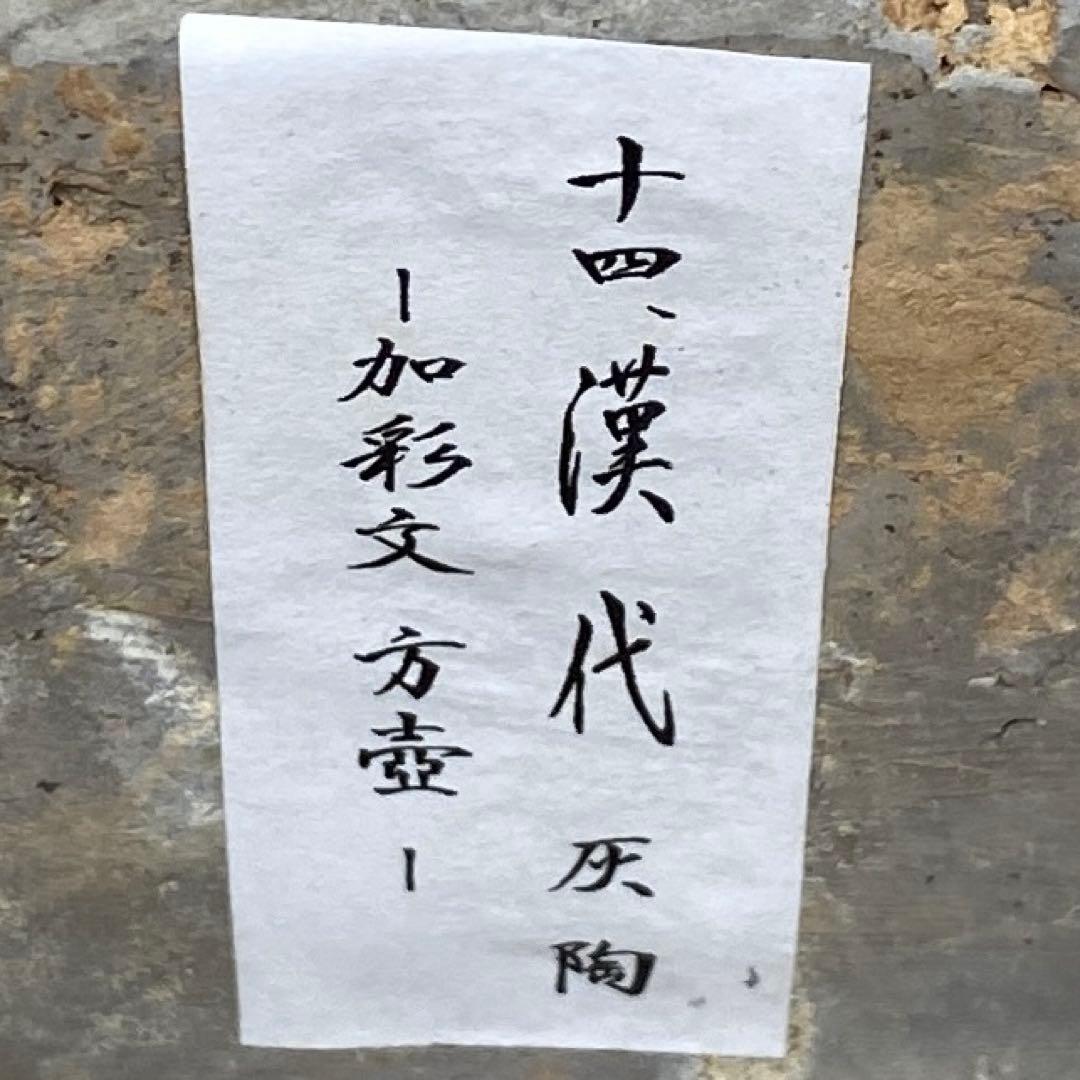 十四、漢代 灰陶
－加彩文 方壺－